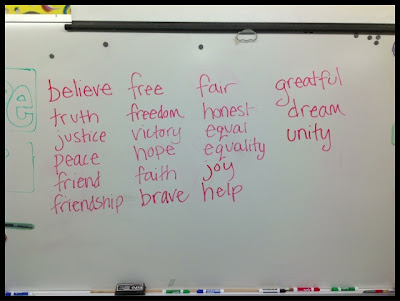 believe
truth
justice
peace
friend
friendship
free
freedom
victory
hope
faith
brave
fair
honest
equal
equality
joy
help
greatful
dream
unity